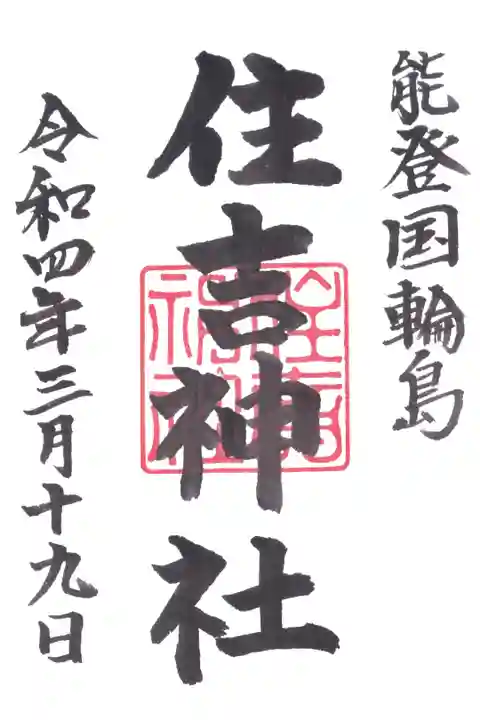 能登国輪島
住吉神社
住吉神社
令和四年三月十九日